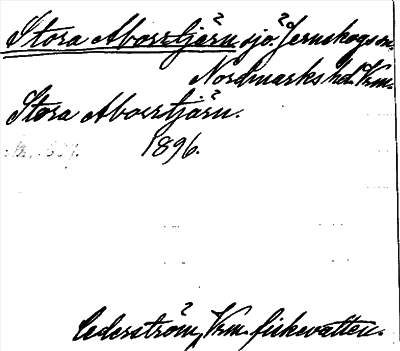 Stora Aborrtjärn sjö. Jernskogs sn.
Nordmarks hd. Vrm.
Stora Aborrtjärn.
1896.
Cederström, Vrm. fiskevatten.